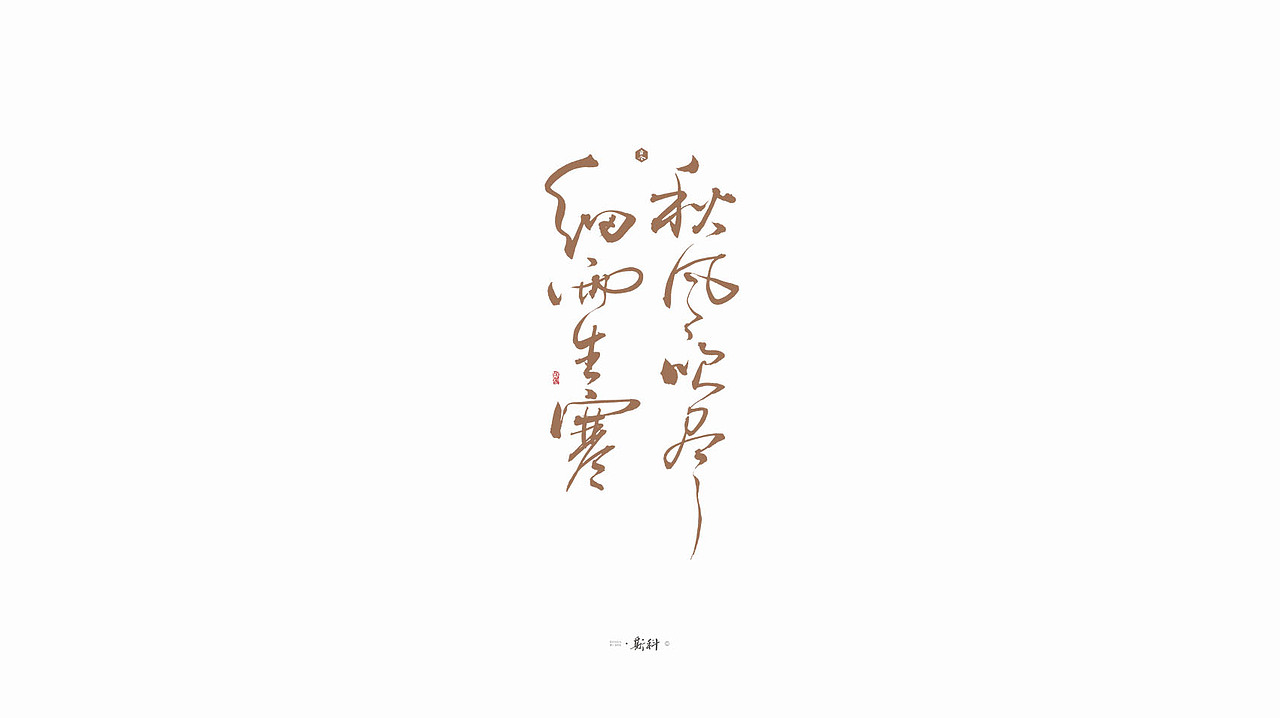 秋风吹尽
细雨生寒
·斯科